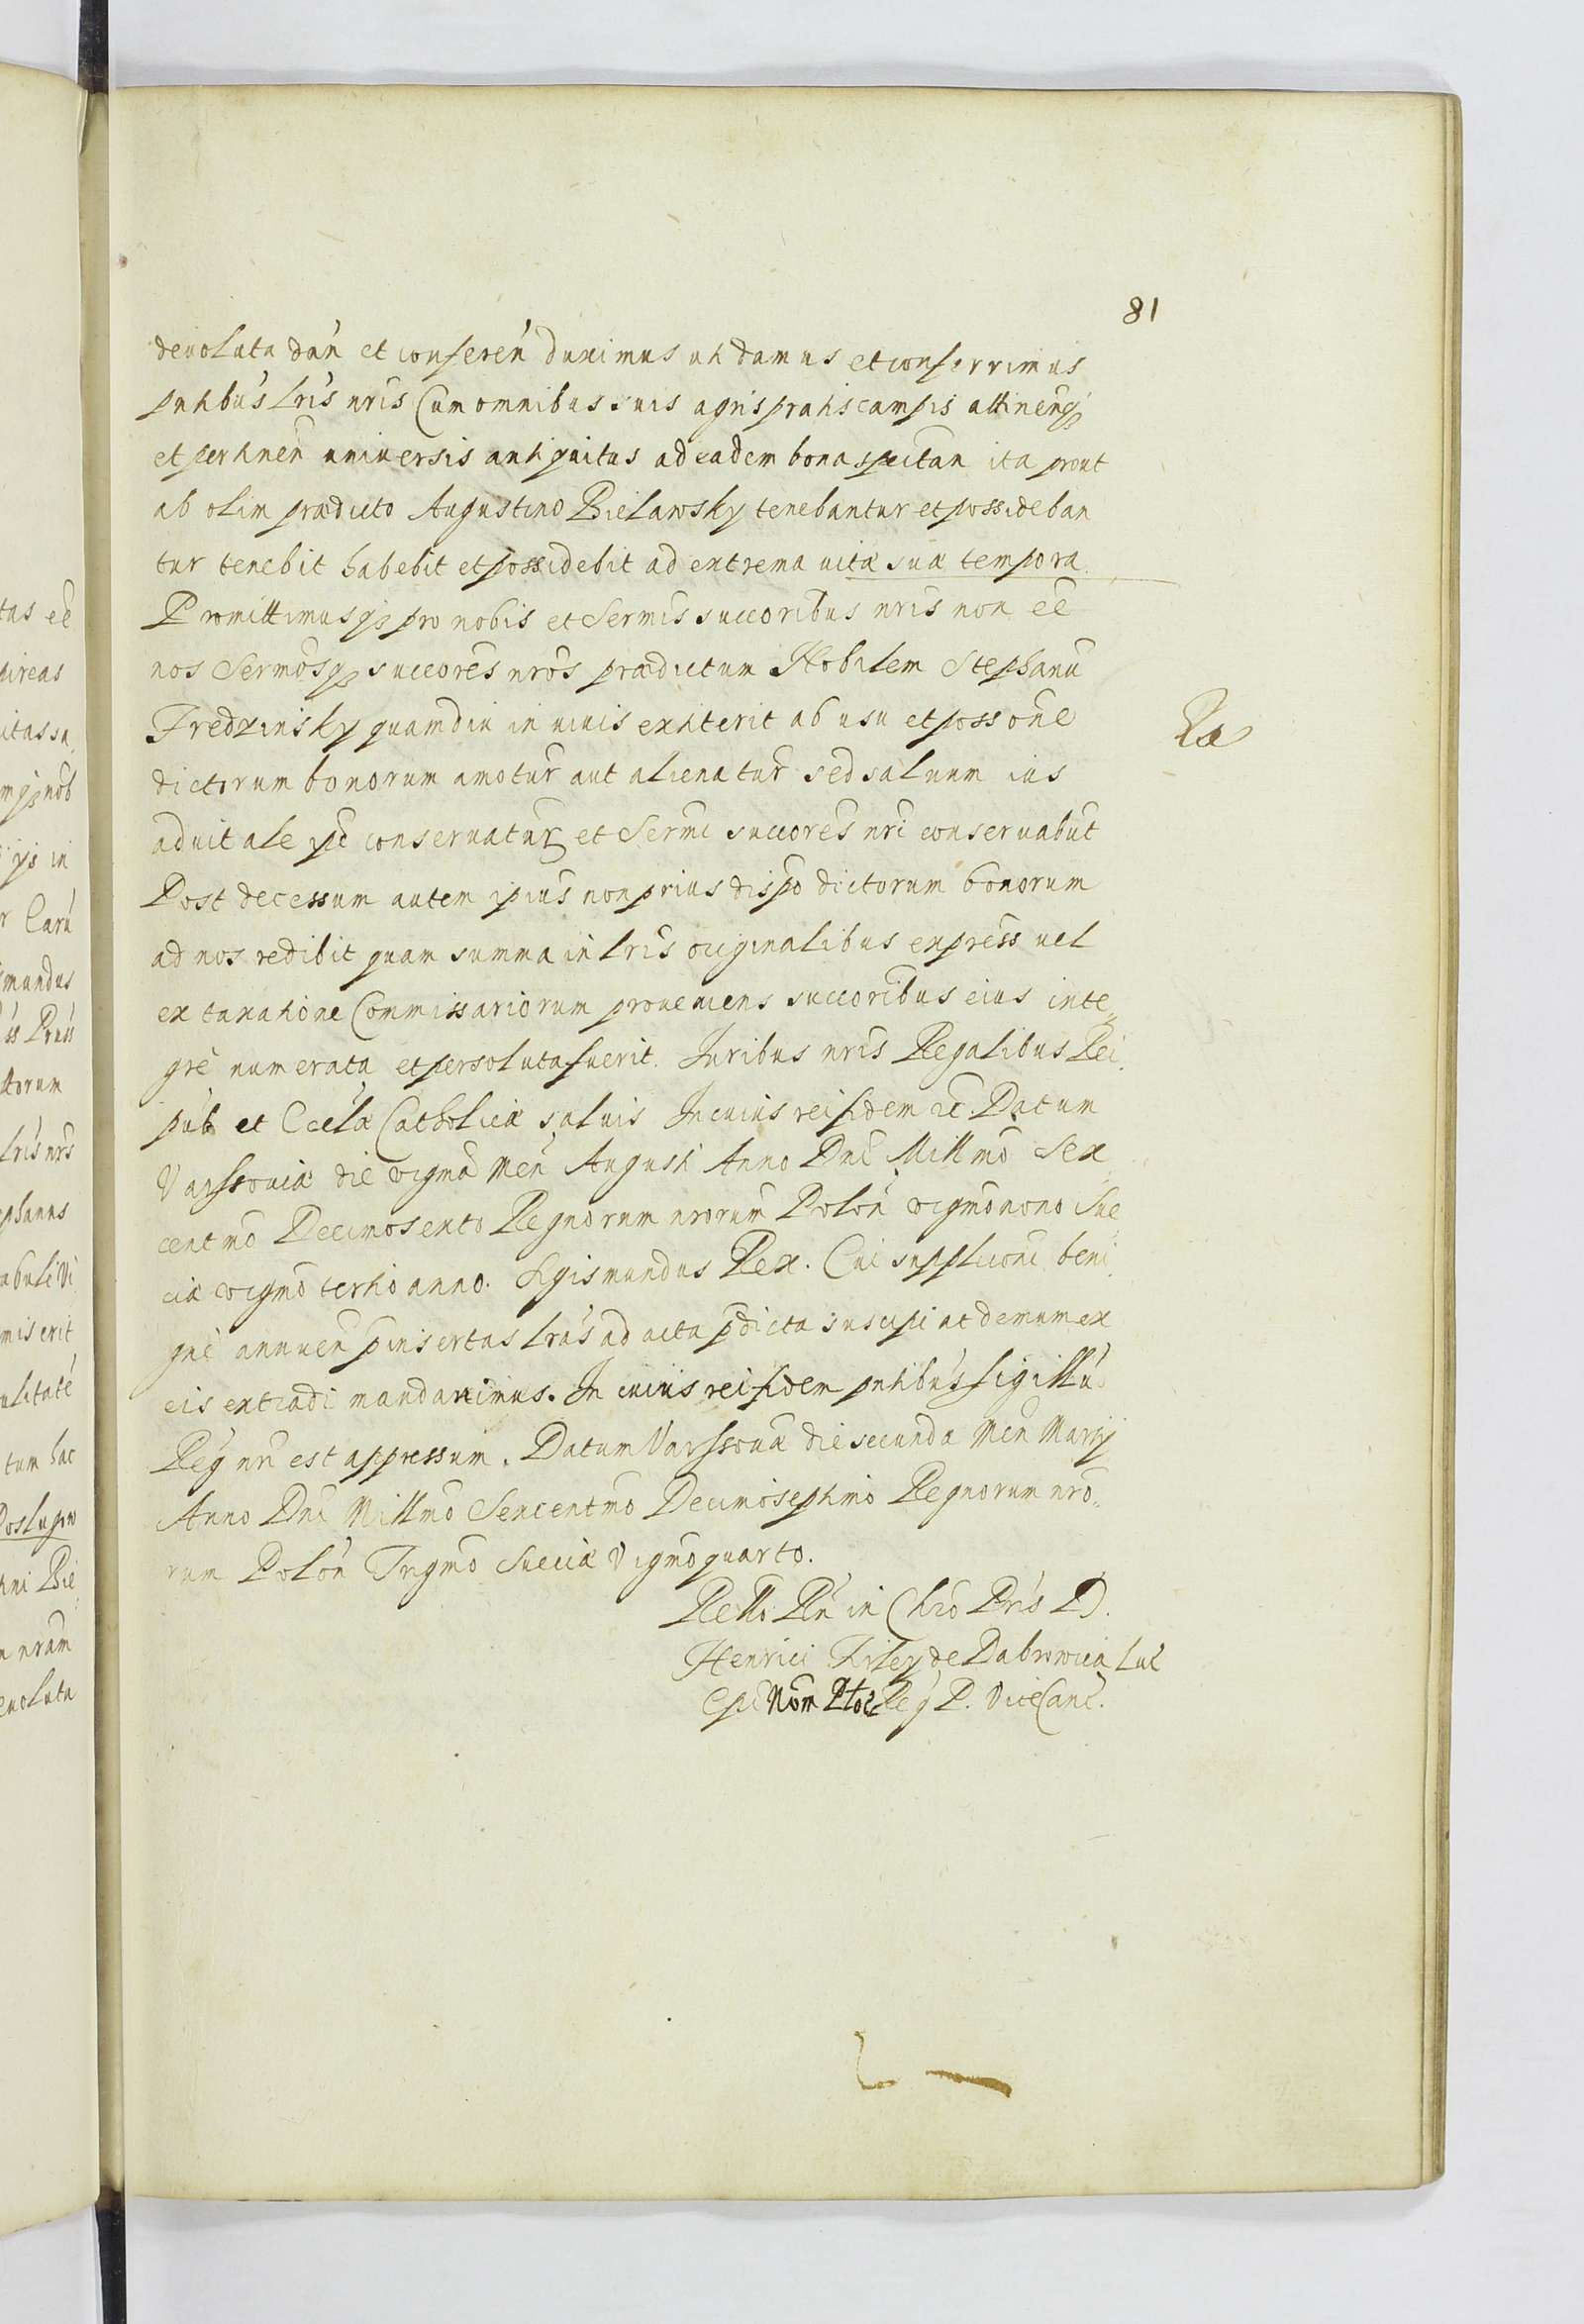 81
devoluta dan et conferen duximus uti damus et conferrimus
pntibus lris nris Cum omnibus suis agris pratis campis attinenq
et pertinen universis antiquitus ad eadem bona spectan ita prout
ab olim prædicto Augustino Bielawsky tenebantur et possideban
tur tenebit habebit et possidebit ad extrema vitæ suæ tempora.
Promittimusq pro nobis et Sermis succoribus nris non ee
nos Sermosq succores nros prædictum Nobilem Stephanu
Fredzinsky quamdiu in vivis extiterit ab usu et possone
dictorum bonorum amotur aut alienatur sed salvum ius
advitale conservatur et Sermi succores nri conservabut
Post decessum autem ipius non prius dispo dictorum bonorum
ad nos redibit quam summa in lris originalibus express vel
ex taxatione Commissariorum proveniens succoribus eius inte
gre numerata et persoluta fuerit. Juribus nris Regalibus Rei
pub et Eccla Catholicæ salvis In cuius rei fidem Datum
Varssoviæ die vigma Men Augusti Anno Dni Millmo Sex
centmo Decimosexto Regnorum nrorum Polon vigmonono Sue
ciæ vigmo tertio anno. Sigismundus Rex. Cui suppliconi beni
gne annuen pinsertas lras ad acta pdicta suscipi ac demum ex
eis extradi mandavimus. In cuius rei fidem pntibus sigillu
Reg nri est appressum. Datum Varssoviæ die secunda Men Marty
Anno Dni Millmo Sexcentmo Decimoseptimo Regnorum nro
rum Polon Trigmo Sueciæ Vigmoquarto.
Rello Rn in Chro Pris D.
Henrici Firley de Dabrowica Luc
Epi Nom Ploc Reg P. ViceCanc.